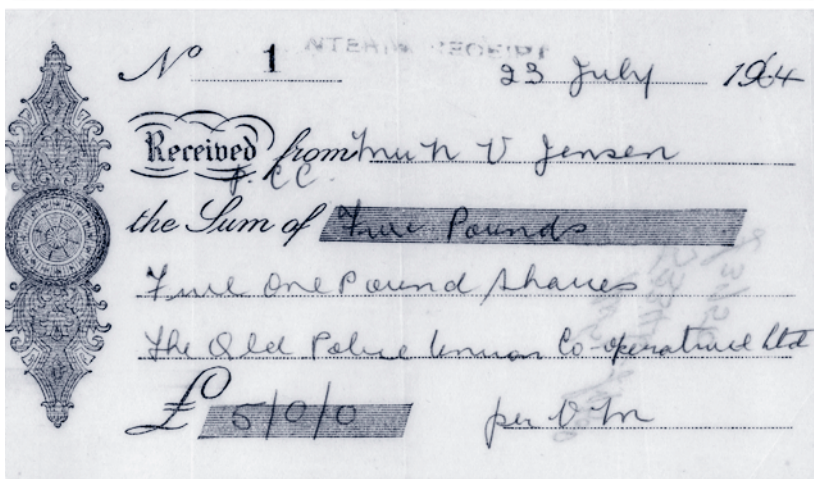 INTERIM RECEIPT
No 1
23 July 1964
Received from Mr N V Jensen
P.C.C.
the Sum of Five Pounds
Five One Pound Shares
The Qld Police Union Co-operative Ltd
£ 5/0/0 per